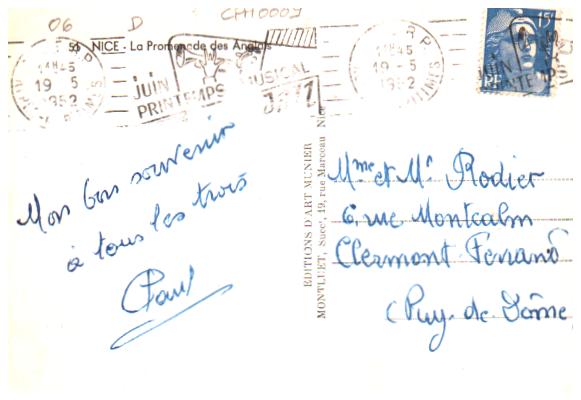 06 D CM10009
55 NICE - La Promenade des Anglais
14H45
19 - 5
1952
JUIN
PRINTEMPS MUSICAL
14H45
19 - 5
1952
MARITIMES
15F
RF
JUIN
PRINTEMPS
Mon bon souvenir
à tous les trois
Paul
EDITIONS D'ART MUNIER
MONTLUET, Succr, 19, rue Marceau Nice
Mme et Mr Rodier
6, rue Montcalm
Clermont-Ferrand
(Puy-de-Dôme